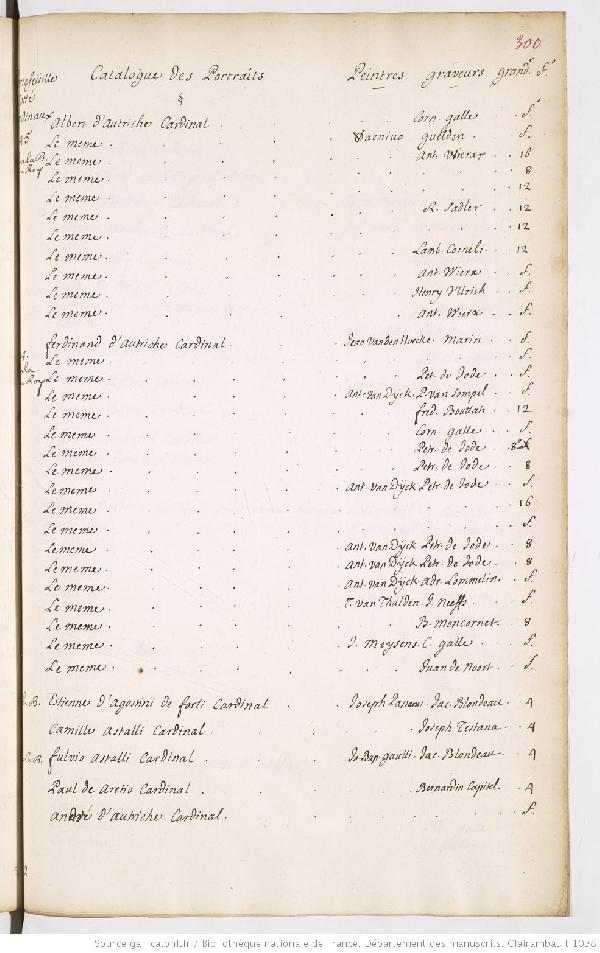 300
Catalogue des Portraits Peintres graveurs grand. f.
§
Albert d'Autriche Cardinal . . . Corn. galle . . f.
Le meme . . . guelden . . f.
Le meme . . . Ant. Wierx . . 16
Le meme . . . 8
Le meme . . . 12
Le meme . . . R. Sadler . . 12
Le meme . . . 12
Le meme . . . Lamb. Corneli . . 12
Le meme . . . Ant. Wierx . . f.
Le meme . . . Henry Ullrich . . f.
Le meme . . . Ant. Wierx . . f.
ferdinand d'Autriche Cardinal . . . Jean Vanden Hoecke . Marin . . f.
Le meme . . . f.
Le meme . . . Pet. de Jode . . f.
Le meme . . . Ant. van Dÿck . P. van Sompel . . f.
Le meme . . . fred. Bouttats . . 12
Le meme . . . Corn. galle . . f.
Le meme . . . Petr. de Jode . . 8
Le meme . . . Petr. de Jode . . 8
Le meme . . . Ant. van Dÿck Petr. de Jode . . f.
Le meme . . . 16
Le meme . . . f.
Le meme . . . Ant. van Dÿck Petr. de Jode . . 8
Le meme . . . Ant. van Dÿck Petr. de Jode . . 8
Le meme . . . Ant. van Dÿck Adr. Lommelin . . f.
Le meme . . . T. van Thulden J. Neeffs . . f.
Le meme . . . B. Moncornet . . 8
Le meme . . . J. Meysens C. galle . . f.
Le meme . . . Juan de Noort . . f.
Etienne d'Agostini de forli Cardinal . . . Joseph Passeri Jac. Blondeau . . 4
Camille Astalli Cardinal . . . Joseph Testana . . 4
fulvio Astalli Cardinal . . . Jo Bap. gaulli . Jac. Blondeau . . 4
Paul de Aretio Cardinal . . . Bernardin Capitel . . 4
André d'Autriche Cardinal . . . f.
Source gallica.bnf.fr / Bibliothèque nationale de France. Département des manuscrits. Clairambault 1038